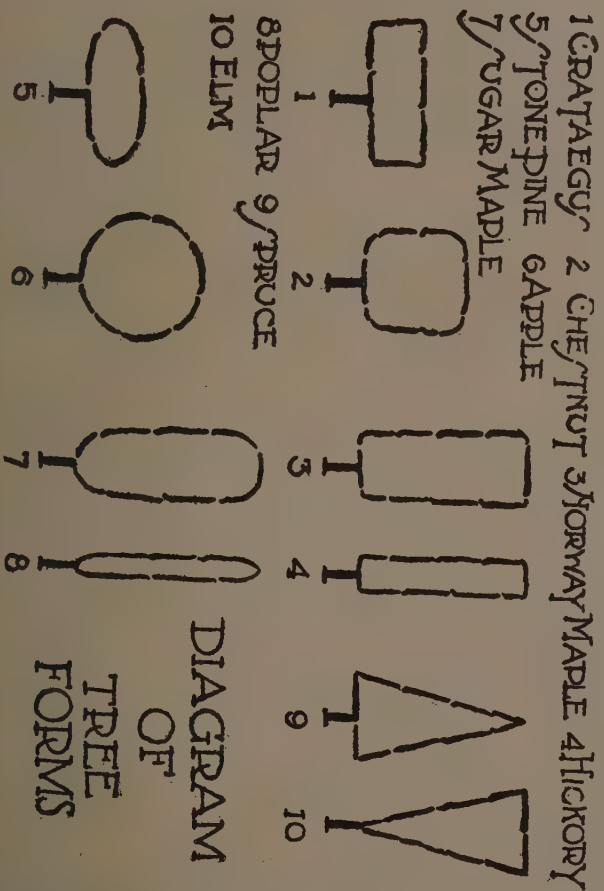 1 CRATAEGUS 2 CHESTNUT 3 NORWAY MAPLE 4 HICKORY
5 STONE PINE 6 APPLE
7 SUGAR MAPLE
1 2 3 4 9 10
8 POPLAR 9 SPRUCE
10 ELM
DIAGRAM
OF
TREE
FORMS
5 6 7 8